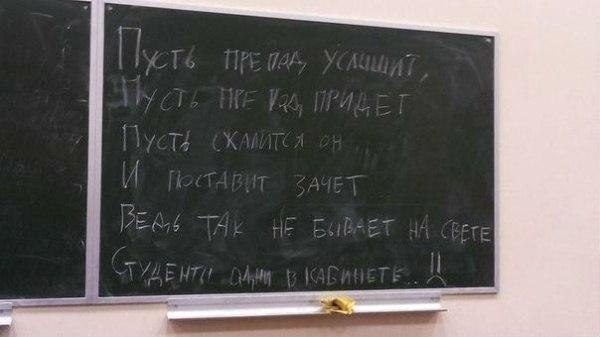 Пусть препод услишит,
Пусть препод придет
Пусть сжалится он
И поставит зачет
Ведь так не бывает на свете
Студенты одни в кабинете..